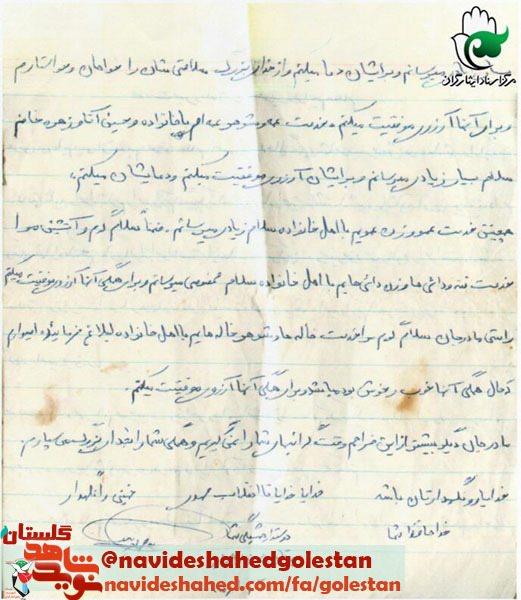 مرکز اسناد ایثارگران
میرسانم و برایشان دعا میکنم و از خدای بزرگ سلامتی شان را خواهان و خواستارم
و برای آنها آرزوی موفقیت میکنم. خدمت عمه و شوهر عمه ام با خانواده و حسین آقا و زهره خانم
سلام بسیار زیادی میرسانم و برایشان آرزوی موفقیت میکنم و دعایشان میکنم.
همچنین خدمت عمو و زن عمویم با اهل خانواده سلام زیاد میرسانم. ضمناً سلام گرم و آتشین مرا
خدمت ننه و دائی ها و زن دائی هایم با اهل خانواده سلام مخصوص میرسانم و برای همگی آنها آرزوی موفقیت میکنم
راستی مادرجان سلام گرم مرا خدمت خاله ها و شوهر خاله هایم با اهل خانواده ابلاغ فرمائید امیدوارم
که حال همگی آنها خوب و خوش بوده باشد و برای همگی آنها آرزوی موفقیت میکنم.
مادرجان دیگر بیشتر از این مزاحم وقت گرانبهای شما نمی گیرم و همگی شما را بخدای بزرگ می سپارم.
خدا یار و نگهدارتان باشد خدایا خدایا تا انقلاب مهدی خمینی را نگهدار
خدا حافظ شما دوستدار همیشگی شما
نوید شاهد گلستان
@navideshahedgolestan
navideshahed.com/fa/golestan